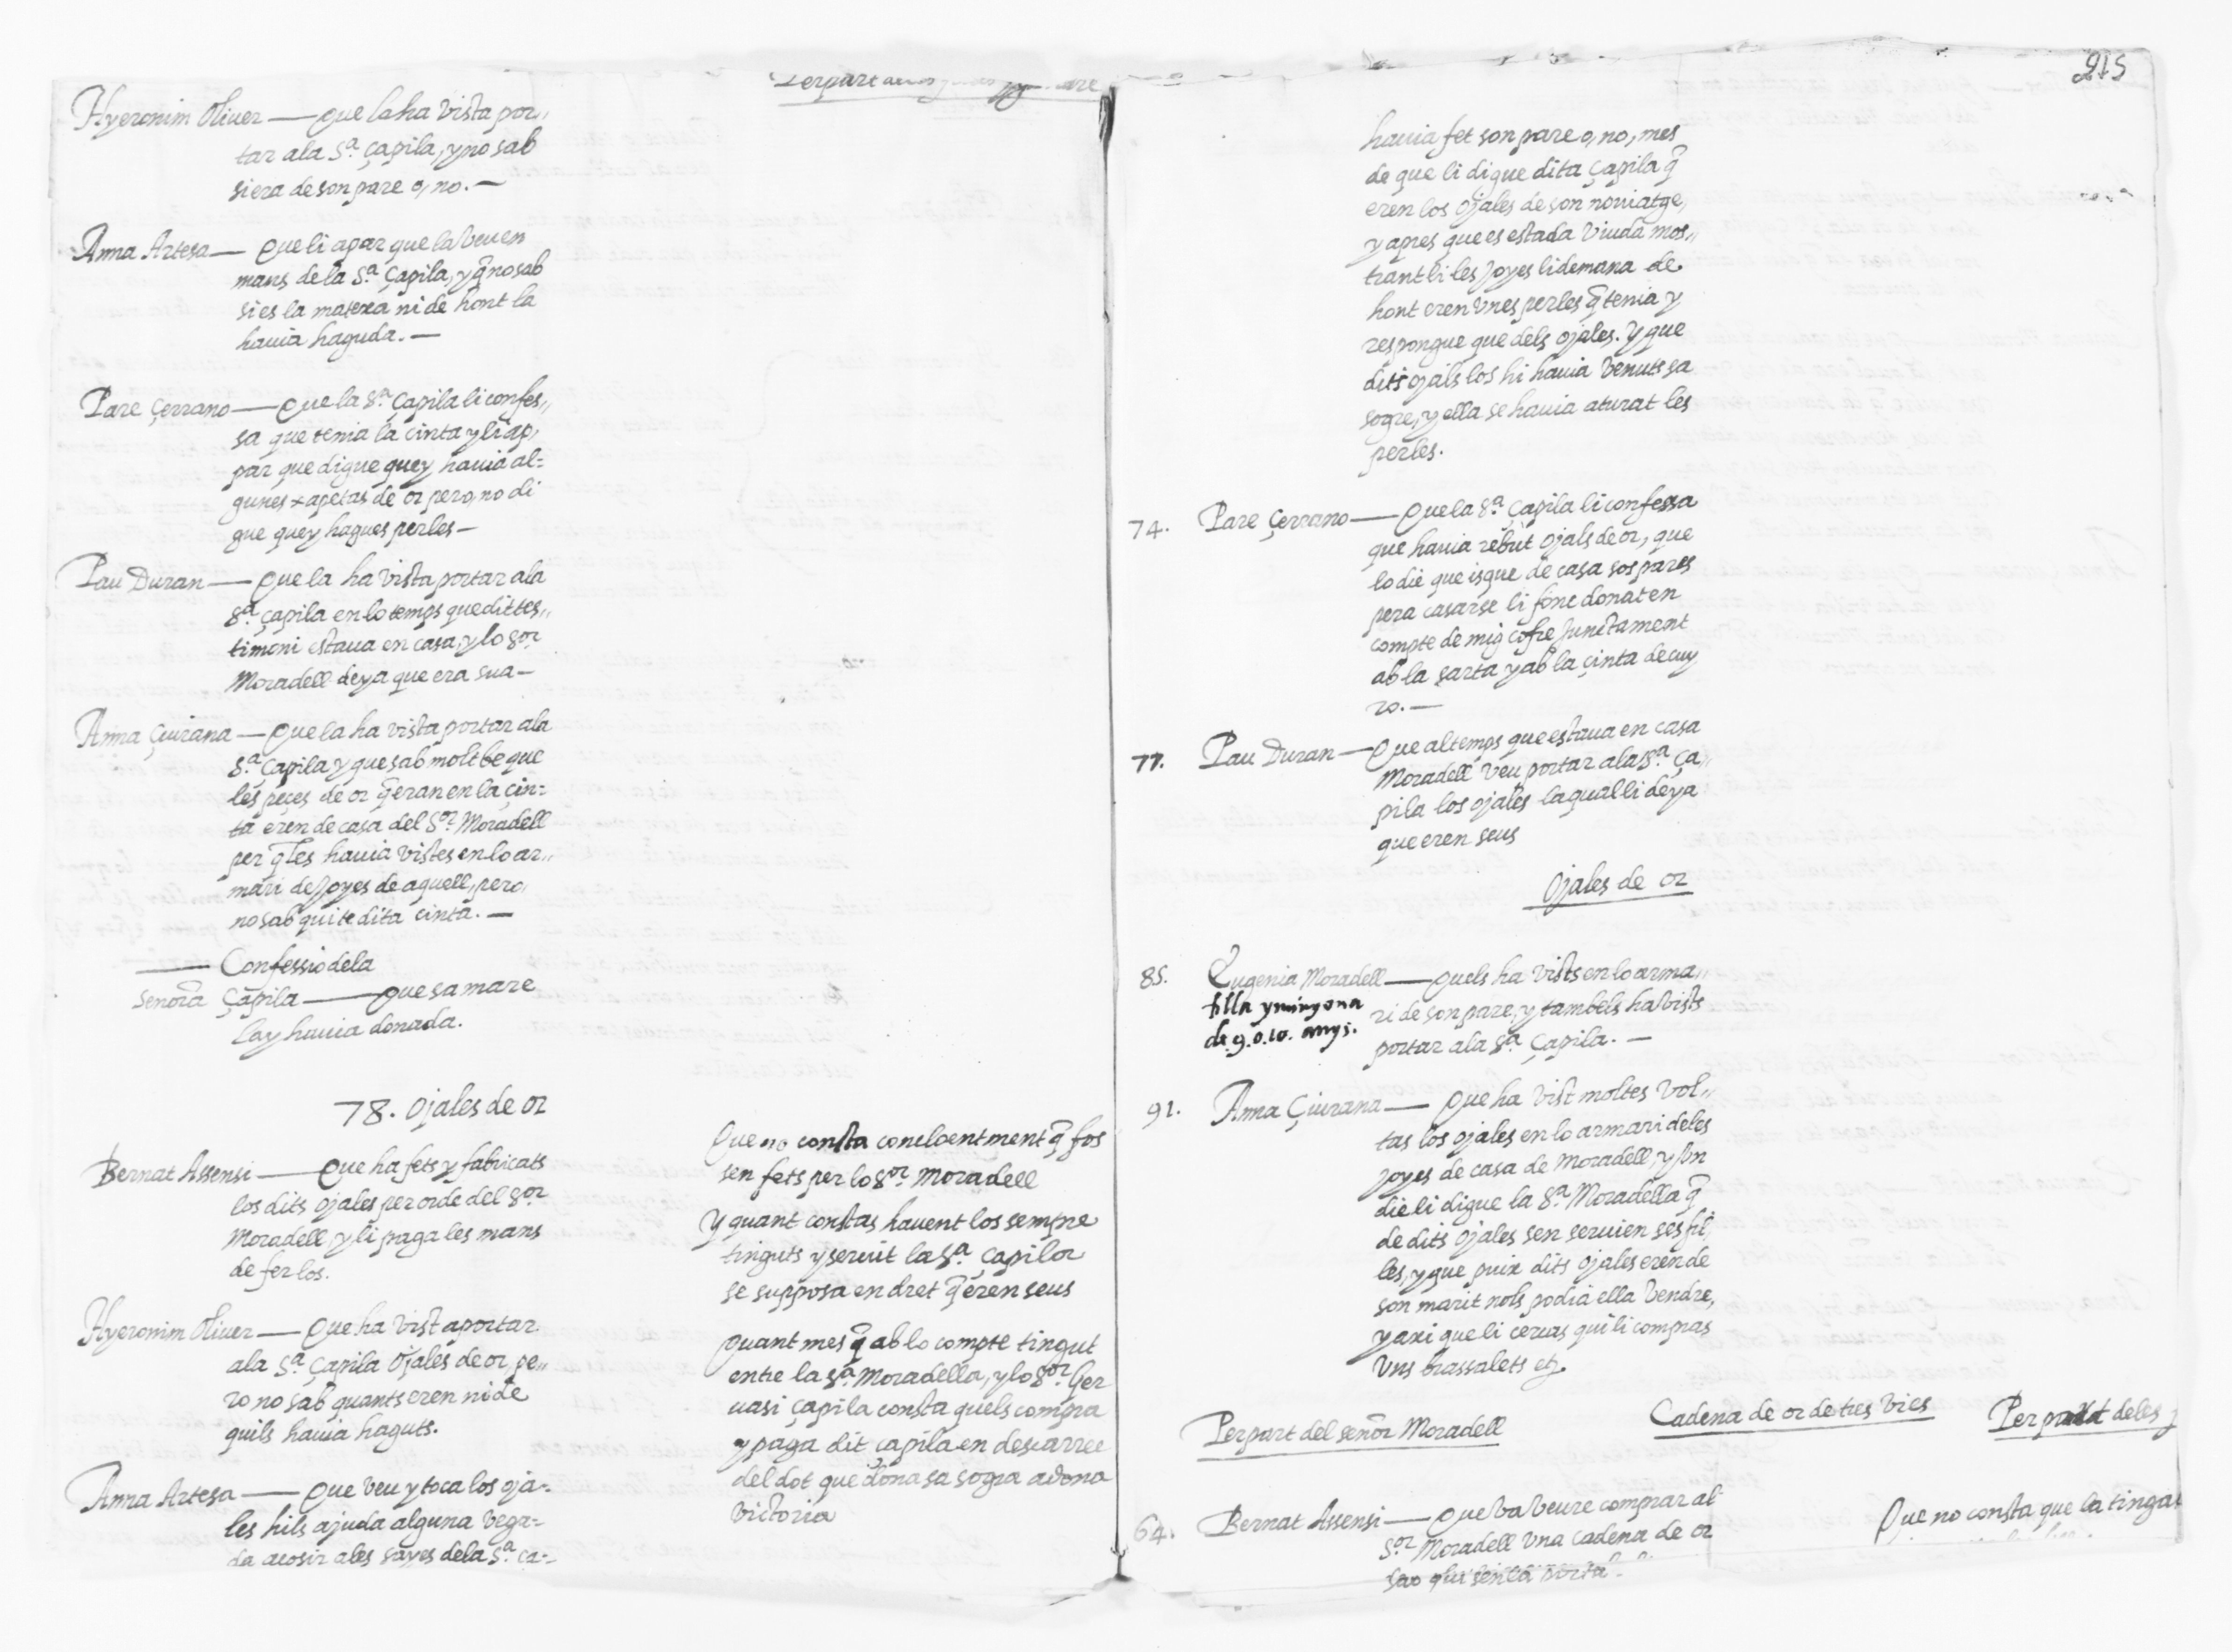 Hyeronim Oliuer — Que la ha vista por,,
tar ala Sª. Çapila, y no sab
si era de son pare o, no. —
Anna Artesa — Que li apar que la veu en
mans de la Sª. Çapila, y q̃ no sab
si es la matexa ni de hont la
hauia haguda. —
Pare Çerrano — Que la Sª. Çapila li confes,,
sa que tenia la cinta y li ap,
par que digue quey hauia al-
gunes xapetas de or pero, no di
gue quey hagues perles —
Pau Duran — Que la ha vista portar ala
Sª. Çapila en lo temps que dit tes,,
timoni estaua en casa, y lo Sor.
Moradell deya que era sua —
Anna Çiurana — Que la ha vista portar ala
Sª. Çapila y que sab molt be que
les peçes de or q̃ eran en la çin-
ta eren de casa del Sor. Moradell
per q̃ les hauia vistes en lo ar,,
mari de Joyes de aquell, pero,
no sab qui te dita cinta. —
— Confessio dela
Senora Çapila — Que sa mare
lay hauia donada.
78. Ojales de or
Bernat Assensi — Que ha fets y fabricats
los dits ojales per orde del Sor
Moradell, y li paga les mans
de fer los.
Hyeronim Oliuer — Que ha vist aportar
ala Sª. Çapila Ojales de or pe,,
ro no sab quants eren ni de
quils hauia haguts.
Anna Artesa — Que veu y toca los oja-
les hils ajuda alguna vega-
da acosir ales sayes dela Sª. Ça-
Que no consta concloentment q̃ fos
sen fets per lo Sor. Moradell
Y quant constas hauent los sempre
tinguts y seruit la Sª. Çapila
se supposa en dret q̃ eren seus
Quant mes q̃ ab lo compte tingut
entre la Sª. Moradella, y lo Sor. Ger
uasi Çapila consta quels compra
y paga dit Çapila en descarrec
del dot que dona sa sogra a dona
Victoria
215
hauia fet son pare o, no, mes
de que li digue dita Çapila q̃
eren los ojales de son nouiatge,
y apres que es estada viuda mos,,
trantli les Joyes li demana de
hont eren vnes perles q̃ tenia y
respongue que dels ojales. Y que
dits ojals los hi hauia venuts sa
sogre, y ella se hauia aturat les
perles.
74. Pare Çerrano — Que la Sª. Çapila li confessa
que hauia rebut ojals de or, que
lo die que isque de casa sos pares
pera casarse li fonc donat en
compte de mig cofre Junctament
ab la sarta y ab la çinta de cuy
ro. —
77. Pau Duran — Que al temps que estaua en casa
Moradell veu portar ala Sª. Ça,,
pila los ojales laqual li deya
que eren seus
Ojales de or
85. Eugenia Moradell — Quels ha vists en lo arma,,
filla y minyona
de 9. o. 10. anys.
ri de son pare, y tambels ha vists
portar ala Sª. Çapila. —
91. Anna Çiurana — Que ha vist moltes vol,,
tas los ojales en lo armari deles
Joyes de casa de Moradell, y hun
die li digue la Sª. Moradella q̃
de dits ojales sen seruien ses fil,
les, y que puix dits ojales eren de
son marit nols podia ella vendre,
y axi que li cercas qui li compras
vns brassalets etc.
Per part del señor Moradell
Cadena de or de tres vies
Per part deles
64. Bernat Assensi — Que va veure comprar al
Sor. Moradell vna cadena de or
Que no consta que la tingas